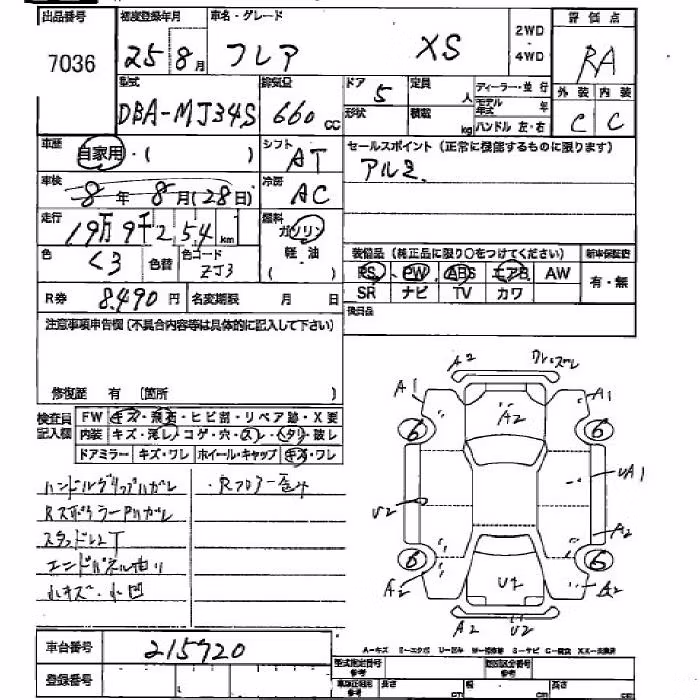 出品番号 初度登録年月 車名・グレード 2WD 評価点
7036 25 8月 フレア XS ・4WD RA
型式 排気量 ドア 定員 ディーラー・並行 外装 内装
DBA-MJ34S 660cc 5 人 モデル年式 年 C C
形状 積載 kg ハンドル 左・右
車歴 自家用・( ) シフト AT セールスポイント(正常に機能するものに限ります)
車検 8年 8月(28日) 冷房 AC アルミ
走行 19万9千254km 燃料 ガソリン
軽油
( )
色 クロ 色替 色コード ZJ3
装備品(純正品に限り○をつけてください) 新車保証書
PS PW ABS エアB AW 有・無
SR ナビ TV カワ
R券 8,490円 名変期限 月 日
後日品
注意事項申告欄(不具合内容等は具体的に記入して下さい)
修復歴 有 [箇所 ]
検査員記入欄 FW キズ・飛石・ヒビ割・リペア跡・X要
内装 キズ・汚レ・コゲ・穴・スレ・ヘタリ・破レ
ドアミラー キズ・ワレ ホイール・キャップ キズ・ワレ
ハンドルグリップハガレ ・Rフロアー歪ミ
Rスポイラークリアハガレ
スタッドレスT
エンドパネル曲り
小キズ・小凹
A2
A1 A2 A1
6 6
UA1
U2
A2
6 6
A2 U2 A2
A2 U2
車台番号 215720
A=キズ
登録番号
型式指定番号 参考 類別区分番号 参考
車庫証明用 参考 長さ cm 幅 cm 高さ cm